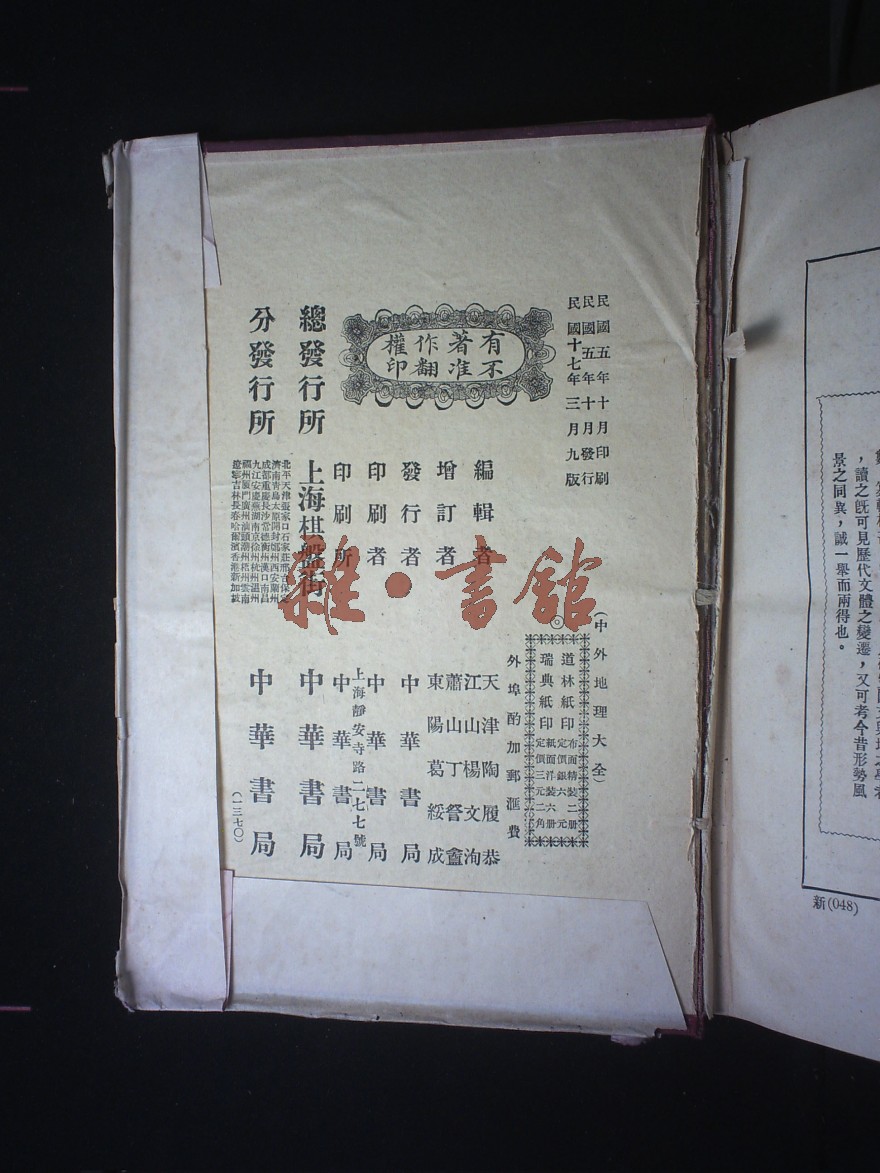 民國五年十月印刷
民國五年十月發行
民國十七年三月九版
有著作權
不准翻印
(中外地理大全)
道林紙印 布面精裝二册 定價銀六元
瑞典紙印 紙面洋裝六册 定價三元二角
外埠酌加郵滙費
編輯者
天津陶履恭
江山楊文洵
增訂者
蕭山丁詧盦
東陽葛綏成
發行者 中華書局
印刷者 中華書局
印刷所 上海靜安寺路二七七號 中華書局
總發行所 上海棋盤街 中華書局
分發行所
北平天津張家口石家莊邢台保定
濟南青島太原開封鄭州西安蘭州
成都重慶長沙常德衡州漢口南昌
九江安慶蕪湖南京徐州杭州溫州
福州廈門廣州汕頭潮州梧州雲南
遼寧吉林長春哈爾濱香港新加坡
中華書局
(一三七〇)
雜·書館
,讀之旣可見歷代文體之變遷,又可考今昔形勢風
景之同異,誠一舉而兩得也。
新(048)